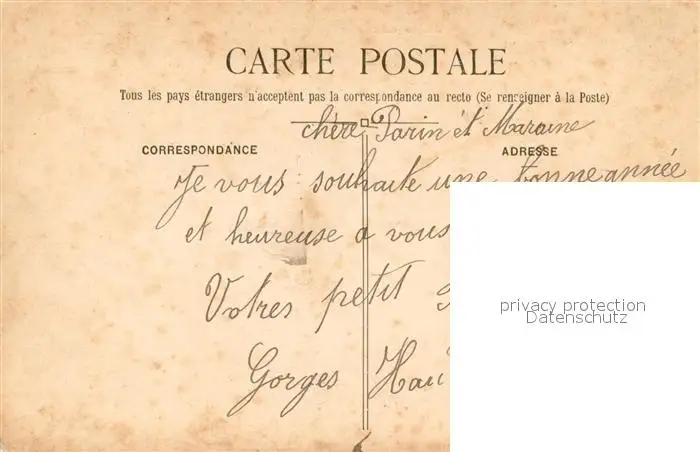 CARTE POSTALE
Tous les pays étrangers n'acceptent pas la correspondance au recto (Se renseigner à la Poste)
chère Parin et Maraine
CORRESPONDANCE ADRESSE
Je vous souhaite une bonne année
et heureuse a vous
Votres petit
privacy protection
Datenschutz
Gorges